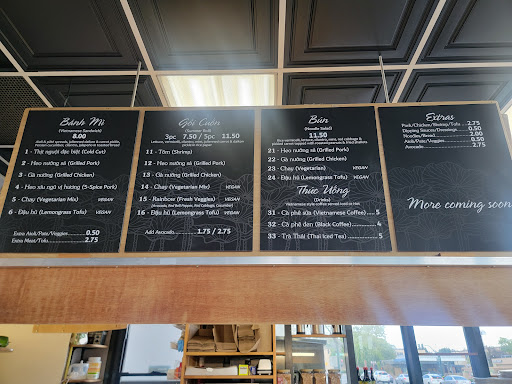 Bánh Mì
(Vietnamese Sandwich)
8.00
1 - Thịt nguội đặc biệt (Cold Cut)
2 - Heo nướng sả (Grilled Pork)
3 - Gà nướng (Grilled Chicken)
4 - Heo xíu ngũ vị hương (5-Spice Pork)
5 - Chay (Vegetarian Mix) VEGAN
6 - Đậu hũ (Lemongrass Tofu) VEGAN
Extra Aioli/Pate/Veggies 0.50
Extra Meat/Tofu 2.75
Gỏi Cuốn
(Summer Roll)
3pc 7.50 / 5pc 11.50
11 - Tôm (Shrimp)
12 - Heo nướng sả (Grilled Pork)
13 - Gà nướng (Grilled Chicken)
14 - Chay (Vegetarian Mix) VEGAN
15 - Rainbow (Fresh Veggies) VEGAN
(Avocado, Red Bell Pepper, Red Cabbage, Cucumber)
16 - Đậu hũ (Lemongrass Tofu) VEGAN
Add Avocado 1.75 / 2.75
Bún
(Noodle Salad)
11.50
21 - Heo nướng sả (Grilled Pork)
22 - Gà nướng (Grilled Chicken)
23 - Chay (Vegetarian Mix) VEGAN
24 - Đậu hũ (Lemongrass Tofu) VEGAN
Thức Uống
(Drinks)
Vietnamese style coffee served iced or Hot
31 - Cà phê sữa (Vietnamese Coffee) 5
32 - Cà phê đen (Black Coffee) 4
33 - Trà Thái (Thai Iced Tea) 5
Extras
Pork/Chicken/Shrimp/Tofu 2.75
Dipping Sauces/Dressings 0.50
Noodles/Bread 2.00
Aioli/Pate/Veggies 0.50
Avocado 2.75
More coming soon